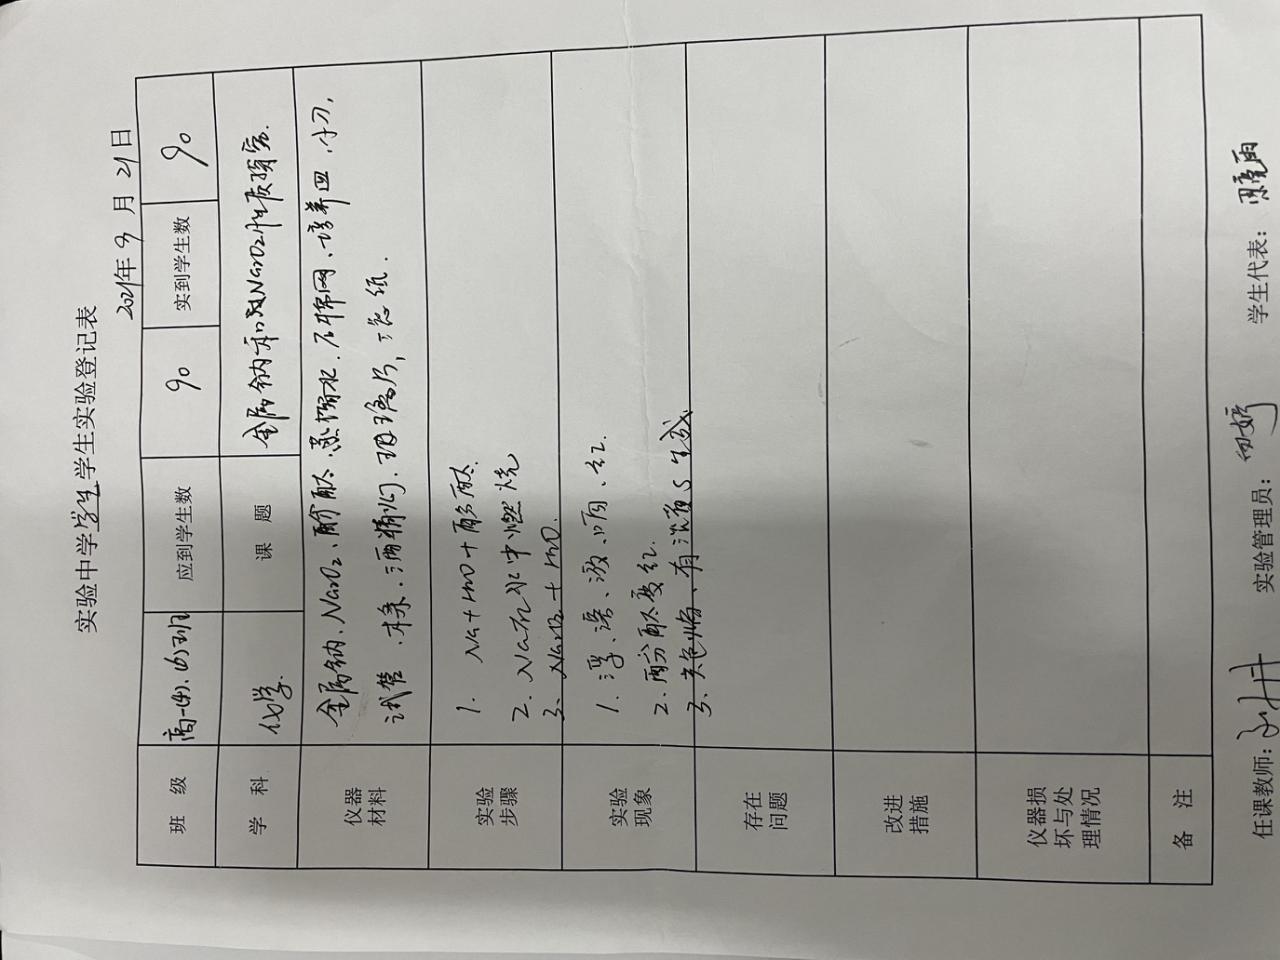 实验中学学生学生实验登记表
2021年9月21日
班 级 高一(4)、(6)班 应到学生数 90 实到学生数 90
学 科 化学. 课 题 金属钠和Na2O2性质实验.
仪器
材料
金属钠、Na2O2、酚酞、蒸馏水、石棉网、培养皿、小刀、
试管、木条、酒精灯、玻璃片,滤纸.
实验
步骤
1. Na+H2O+酚酞.
2. Na在 中燃烧
3. Na2O2+H2O.
实验
现象
1. 浮、游、 、响、红.
2. 酚酞变红.
3. 有 生成
存在
问题
改进
措施
仪器损
坏与处
理情况
备 注
任课教师: 实验管理员: 学生代表: